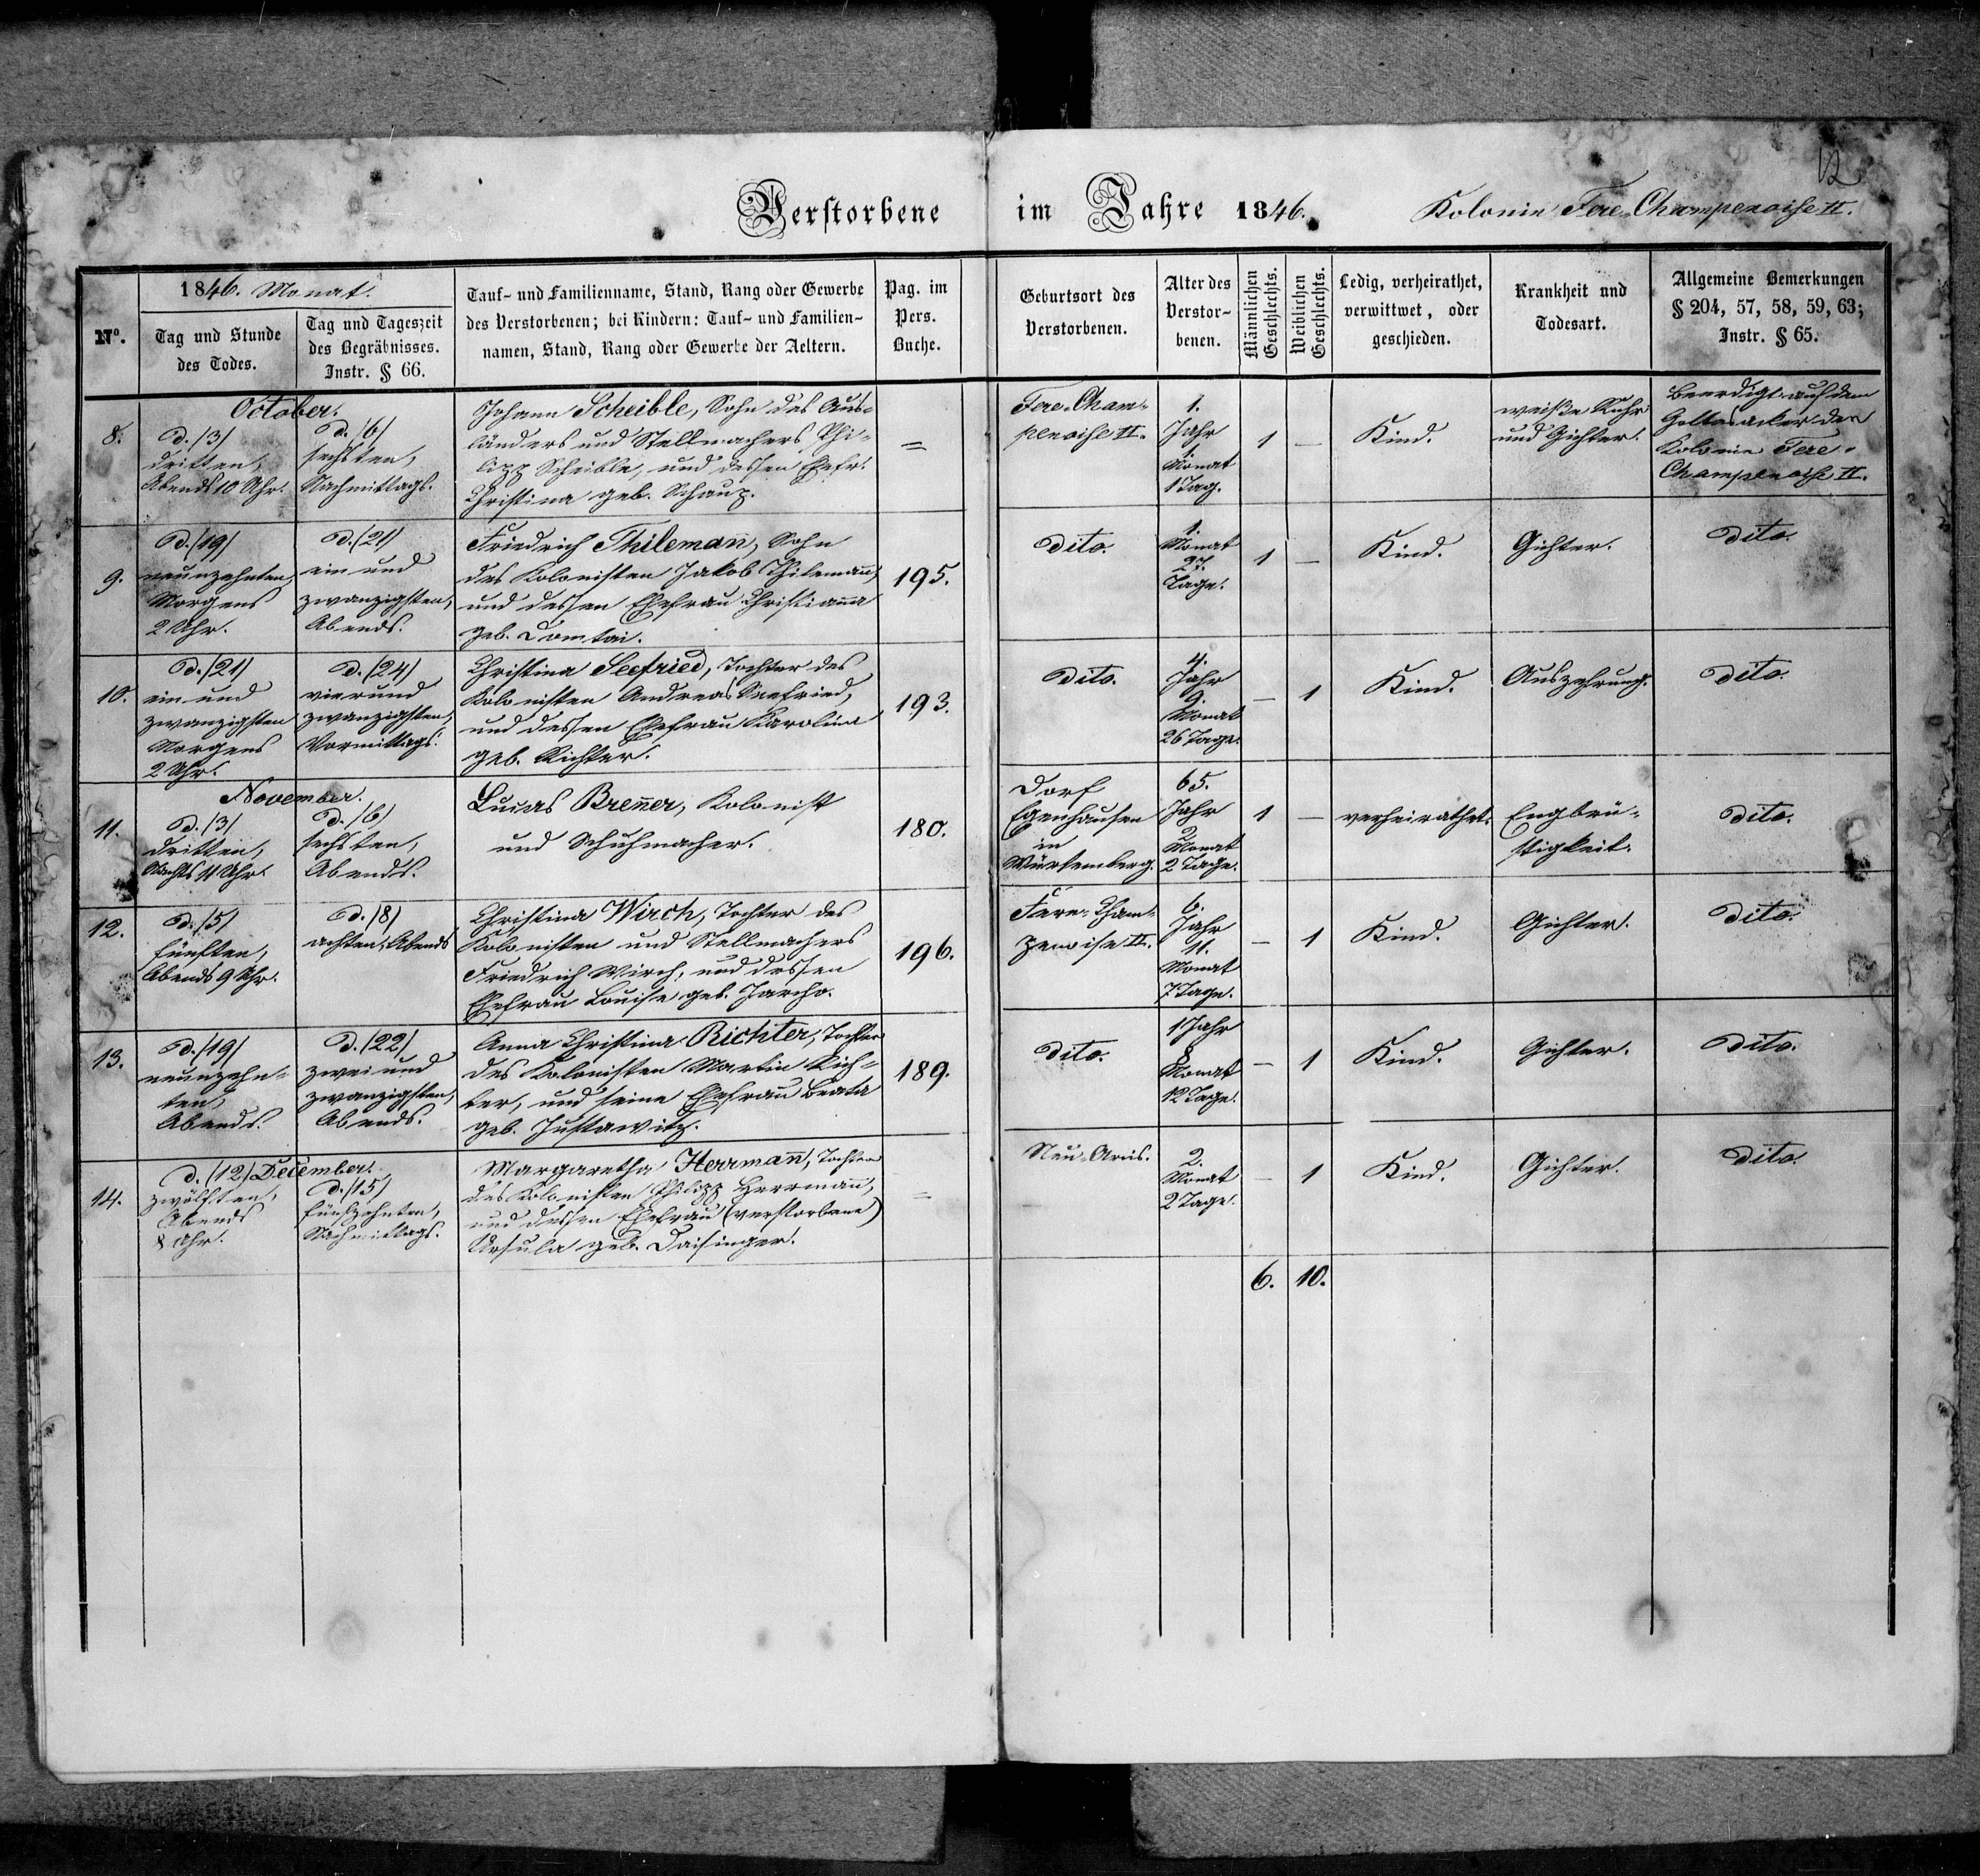 12
Verstorbene im Jahre 1846. Kolonie Fere-Champenoise II.
Nº.
1846. Monat.
Tag und Stunde
des Todes.
Tag und Tageszeit
des Begräbnisses.
Instr. § 66.
Tauf- und Familienname, Stand, Rang oder Gewerbe
des Verstorbenen; bei Kindern: Tauf- und Familien-
namen, Stand, Rang oder Gewerbe der Aeltern.
Pag. im
Pers.
Buche.
Geburtsort des
Verstorbenen.
Alter des
Verstor-
benen.
Männlichen
Geschlechts.
Weiblichen
Geschlechts.
Ledig, verheirathet,
verwittwet, oder
geschieden.
Krankheit und
Todesart.
Allgemeine Bemerkungen
§ 204, 57, 58, 59, 63;
Instr. § 65.
October.
8.
d. /3/
dritten,
Abends 10 Uhr.
d. /6/
sechsten,
Nachmittags.
Johann Scheible, Sohn des Aus-
länders und Stellmachers Phi-
lipp Scheible, und dessen Ehefr.
Christina geb. Schaup.
=
Fere-Cham-
penoise II.
1.
Jahr
1.
Monat
1 Tag.
1
—
Kind.
weiße Ruhr
und Gichter.
Beerdigt auf dem
Gottesacker der
Kolonie Fere-
Champenoise II.
9.
d. /19/
neunzehnten,
Morgens
2 Uhr.
d. /21/
ein und
zwanzigsten,
Abends.
Friedrich Thilemañ, Sohn
des Kolonisten Jakob Thilemañ,
und dessen Ehefrau Christianna
geb. Domtai.
195.
dito.
1.
Monat
27.
Tage.
1
—
Kind.
Gichter.
dito.
10.
d. /21/
ein und
zwanzigsten
Morgens
2 Uhr.
d. /24/
vierund
zwanzigsten,
Vormittags.
Christina Seefried, Tochter des
Kolonisten Andreas Seefried,
und dessen Ehefrau Karolina
geb. Richter.
193.
dito.
4.
Jahr
9.
Monat
26 Tage.
—
1
Kind.
Auszehrung.
dito.
November.
11.
d. /3/
dritten,
Nachts 11 Uhr.
d. /6/
sechsten,
Abends.
Lucas Breñer, Kolonist
und Schuhmacher.
180.
Dorf
Egenhausen
in
Würtemberg.
65.
Jahr
2
Monat
2 Tage.
1
—
verheirathet.
Engbrü-
stigkeit.
dito.
12.
d. /5/
fünften,
Abends 9 Uhr.
d. /8/
achten, Abends
Christina Wirch, Tochter des
Kolonisten und Stellmachers
Friedrich Wirch, und dessen
Ehefrau Louise geb. Jarcho.
196.
Fere-Cham-
penoise II.
6.
Jahr
11.
Monat
7 Tage.
—
1
Kind.
Gichter.
dito.
13.
d. /19/
neunzehn-
ten,
Abends.
d. /22/
zwei und
zwanzigsten,
Abends.
Anna Christina Richter, Tochter
des Kolonisten Martin Rich-
ter, und seine Ehefrau Beata
geb. Justawitz.
189.
dito.
1 Jahr
8
Monat
12 Tage.
—
1
Kind.
Gichter.
dito.
14.
d. /12/ December.
zwölften,
Abends
8 Uhr.
d. /15/
fünfzehnten,
Nachmittags.
Margaretha Herrmañ, Tochter
des Kolonisten Philipp Herrmañ,
und dessen Ehefrau (verstorbene)
Ursula geb. Daisinger.
=
Neu-Arcis.
2.
Monat
2 Tage.
—
1
Kind.
Gichter.
dito.
6. 10.